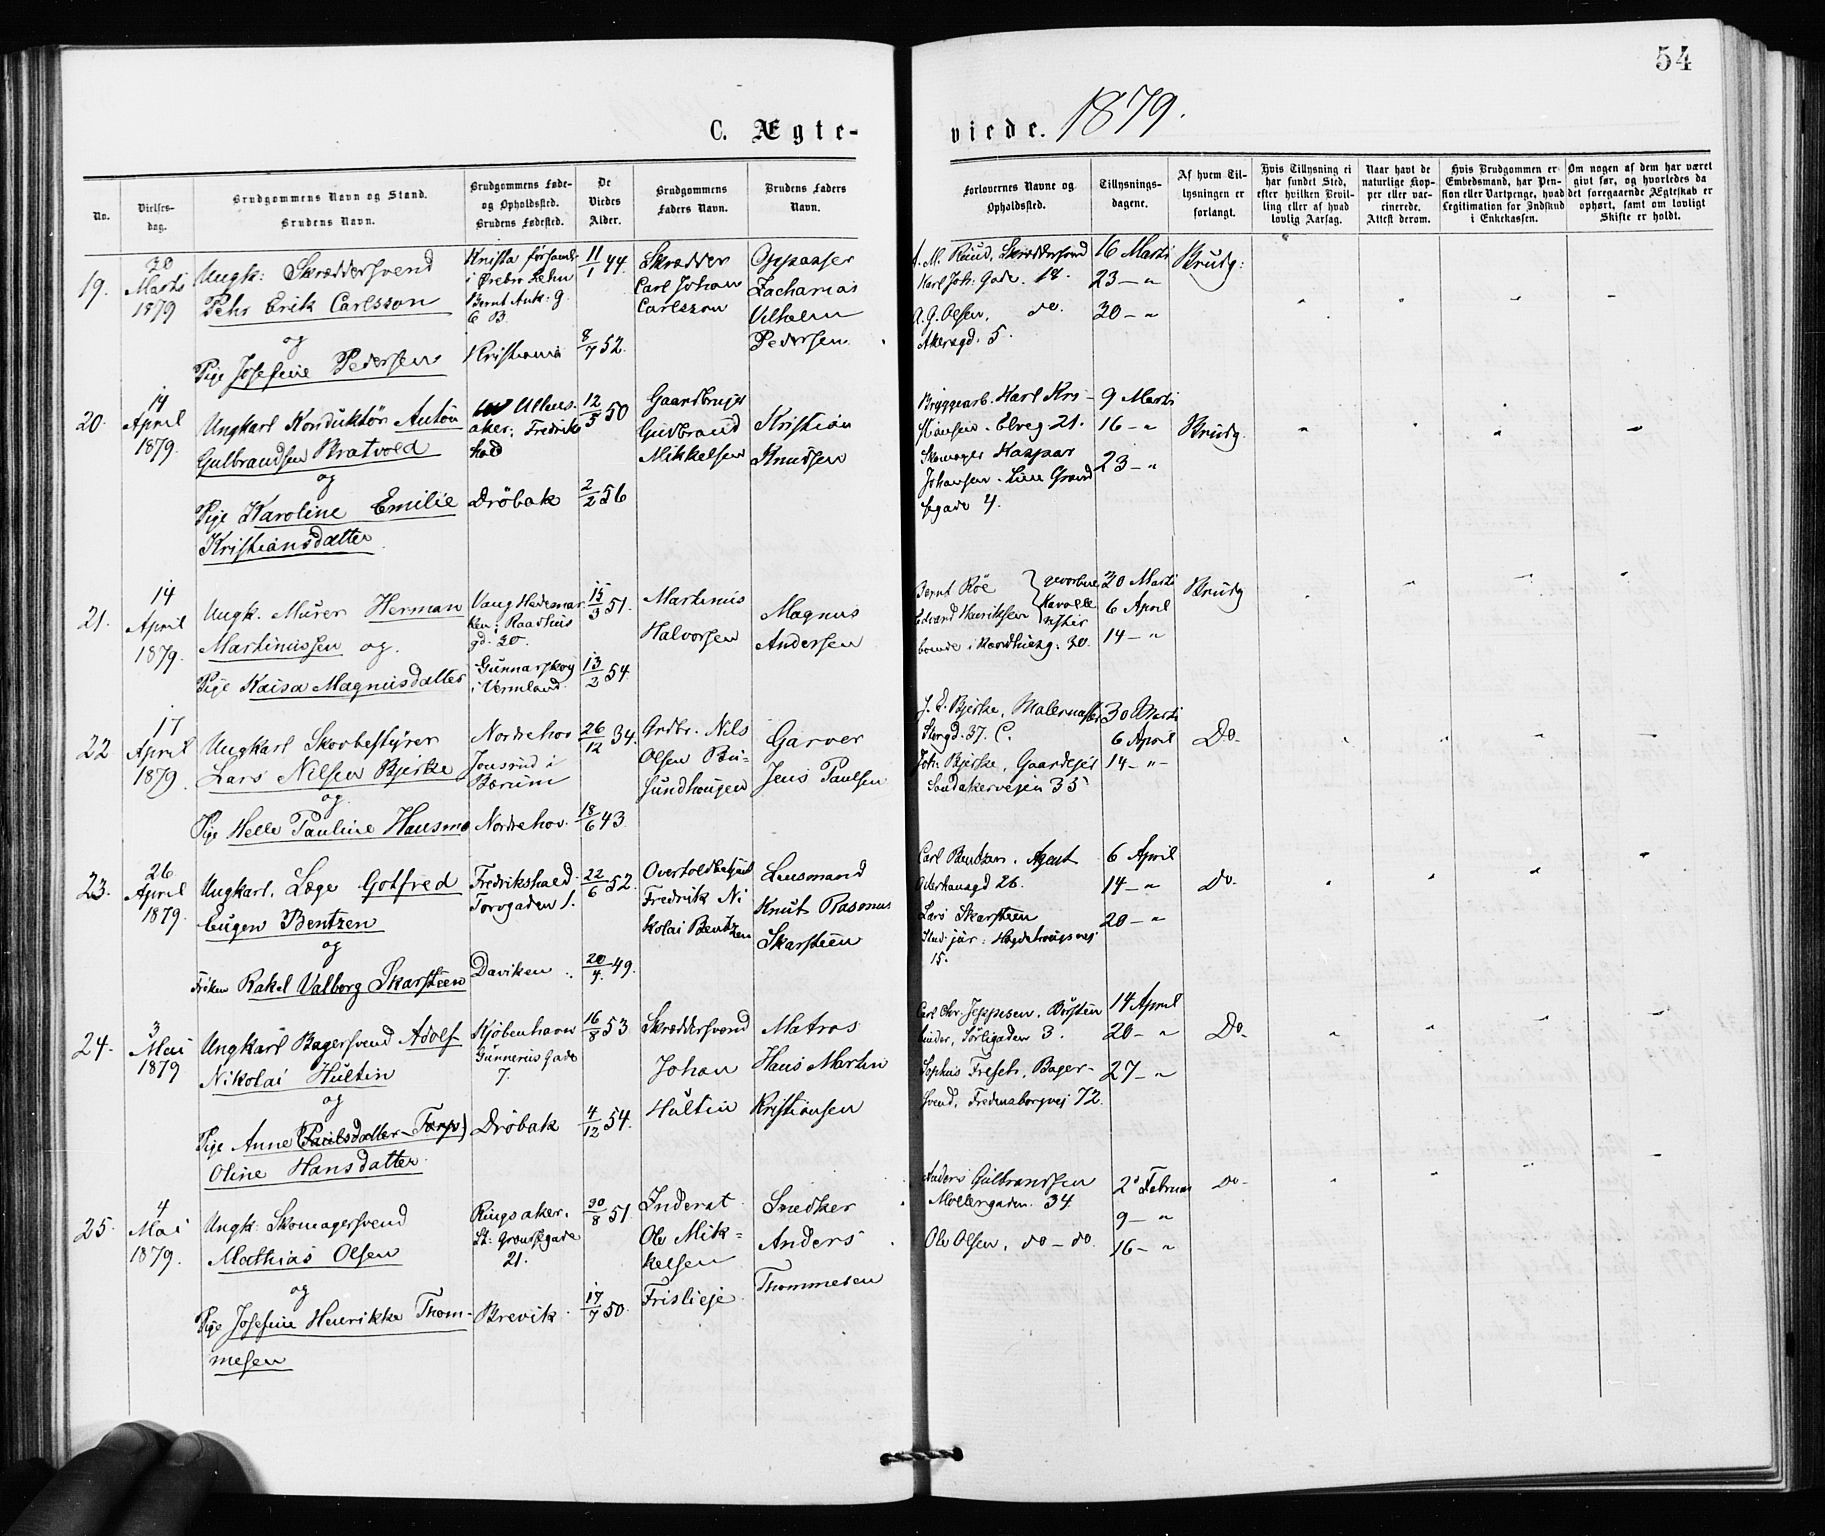 54
C. Ægte-
viede. 1879.
No.
Vielses-
dag.
Brudgommens Navn og Stand.
Brudens Navn.
Brudgommens Føde-
og Opholdssted.
Brudens Fødested.
De
Viedes
Alder.
Brudgommens
Faders Navn.
Brudens Faders
Navn.
Forlovernes Navne og
Opholdssted.
Tillysnings-
dagene.
Af hvem Til-
lysningen er
forlangt.
Hvis Tillysning ei
har fundet Sted,
efter hvilken Bevil-
ling eller af hvad
lovlig Aarsag.
Naar havt de
naturlige Kop-
per eller vac-
cinerede.
Attest derom.
Hvis Brudgommen er
Embedsmand, har Pen-
sion eller Vartpenge, hvad
Legitimation for Indskud
i Enkekassen.
Om nogen af dem har været
givt før, og hvorledes da
det foregaaende Ægteskab er
ophørt, samt om lovligt
Skifte er holdt.
19.
30
Marts
1879
Ungk: Skræddersvend
Pehr Erik Carlsson
og
Pige Josefine Pedersen
Knista
i Ørebro Lehn
Bernt Ank: g
6 B.
Kristiania
11/1 44.
8/7 52.
Skrædder
Carl Johan
Carlsson
Oppasser
Zacharias
Vilhelm
Pedersen.
A. M. Ruud, Skræddersvend
Karl Joh: Gade. 18.
A. G. Olsen, do.
Akersgd. 5.
16 Marts
23 — "
30 — "
Brudg:
20.
14
April
1879.
Ungkarl Konduktør Anton
Gulbrandsen Bratvold
og
Pige Karoline Emilie
Kristiansdatter
Ullens-
aker; Fredriks
hald
Drøbak
12/5 50
2/2 56
Gaardbruger
Gudbrand
Mikkelsen
Kristian
Knudsen
Bryggearb. Karl Kri-
stiansen. Elveg 21.
Skomager Kaspar
Johansen. Lille Grænd
segade 4.
9 Marts
16 — "
23 — "
Brudg.
21.
14
April
1879.
Ungk. Murer Herman
Martinussen og.
Pige Kaisa Magnusdatter
Vang Hedemar
ken; Raadhus
gd. 30.
Gunnarskog
i Vermland.
15/3 51.
13/2 54.
Martinus
Halvorsen
Magnus
Andersen
Bernt Roe
Edvard Henriksen
boende i Raadhusg. 30.
30 Marts
6 April
14 — "
Brudg
22
17
April
1879.
Ungkarl Skovbestyrer
Lars Nilsen Bjerke
og
Pige Helle Pauline Hansmo
Norderhov
Jonsrud i
Bærum
Norderhov.
26/12 34.
18/6 43
Grdbr. Nils
Olsen Bu-
sundhaugen
Garver
Jens Paulsen
J. E. Bjerke, Malermester
Storgd. 37. C.
Joh. Bjerke, Gaardejer
Sandakerveien 35
30 Marts
6 April
14 — "
Do.
23.
26
April
1879.
Ungkarl, Læge Gotfred
Eugen Bentzen
og
Frøken Rakel Valborg Skarsteen
Fredrikshald
Torvgaden 1.
Daviken
22/6 52.
20/4 49.
Overtoldbetjent
Fredrik Ni
kolai Bentzen
Lensmand
Knut Rasmus
Skarsteen
Carl Bentzen. Agent
26.
Lars Skarsteen
Stud: jur: Hegdehaugsvej
15.
6 April
14 — "
20 — "
Do.
24.
3
Mai
1879
Ungkarl Bagersvend Adolf
Nikolai Hultin
og
Pige Anne (Paulsdatter-Torp)
Oline Hansdatter
Kjøbenhavn
Gunnerus Gade
7.
Drøbak
16/8 53
4/12 54.
Skræddersvend
Johan
Hultin
Matros
Hans Martin
Kristiansen
Carl Chr. Jeppesen, Børsten
binder, Sørligaden 3.
Sophus Fresch, Bager-
svend, Fredensborgvej 72.
14 April
20 — "
27 — "
Do.
25.
4
Mai
1879.
Ungk. Skomagersvend
Mathias Olsen
og
Pige Josefine Henrikke Thom-
mesen
Ringsaker.
St: Grændsegade
21.
Brevik.
30/8 51.
17/7 50.
Inderst
Ole Mik-
kelsen
Frislieje
Snedker
Anders
Thommesen
Anders Gulbrandsen
Møllergaden. 34.
Ole Olsen, do — do.
2 Februar
9 — "
16 — "
Do.